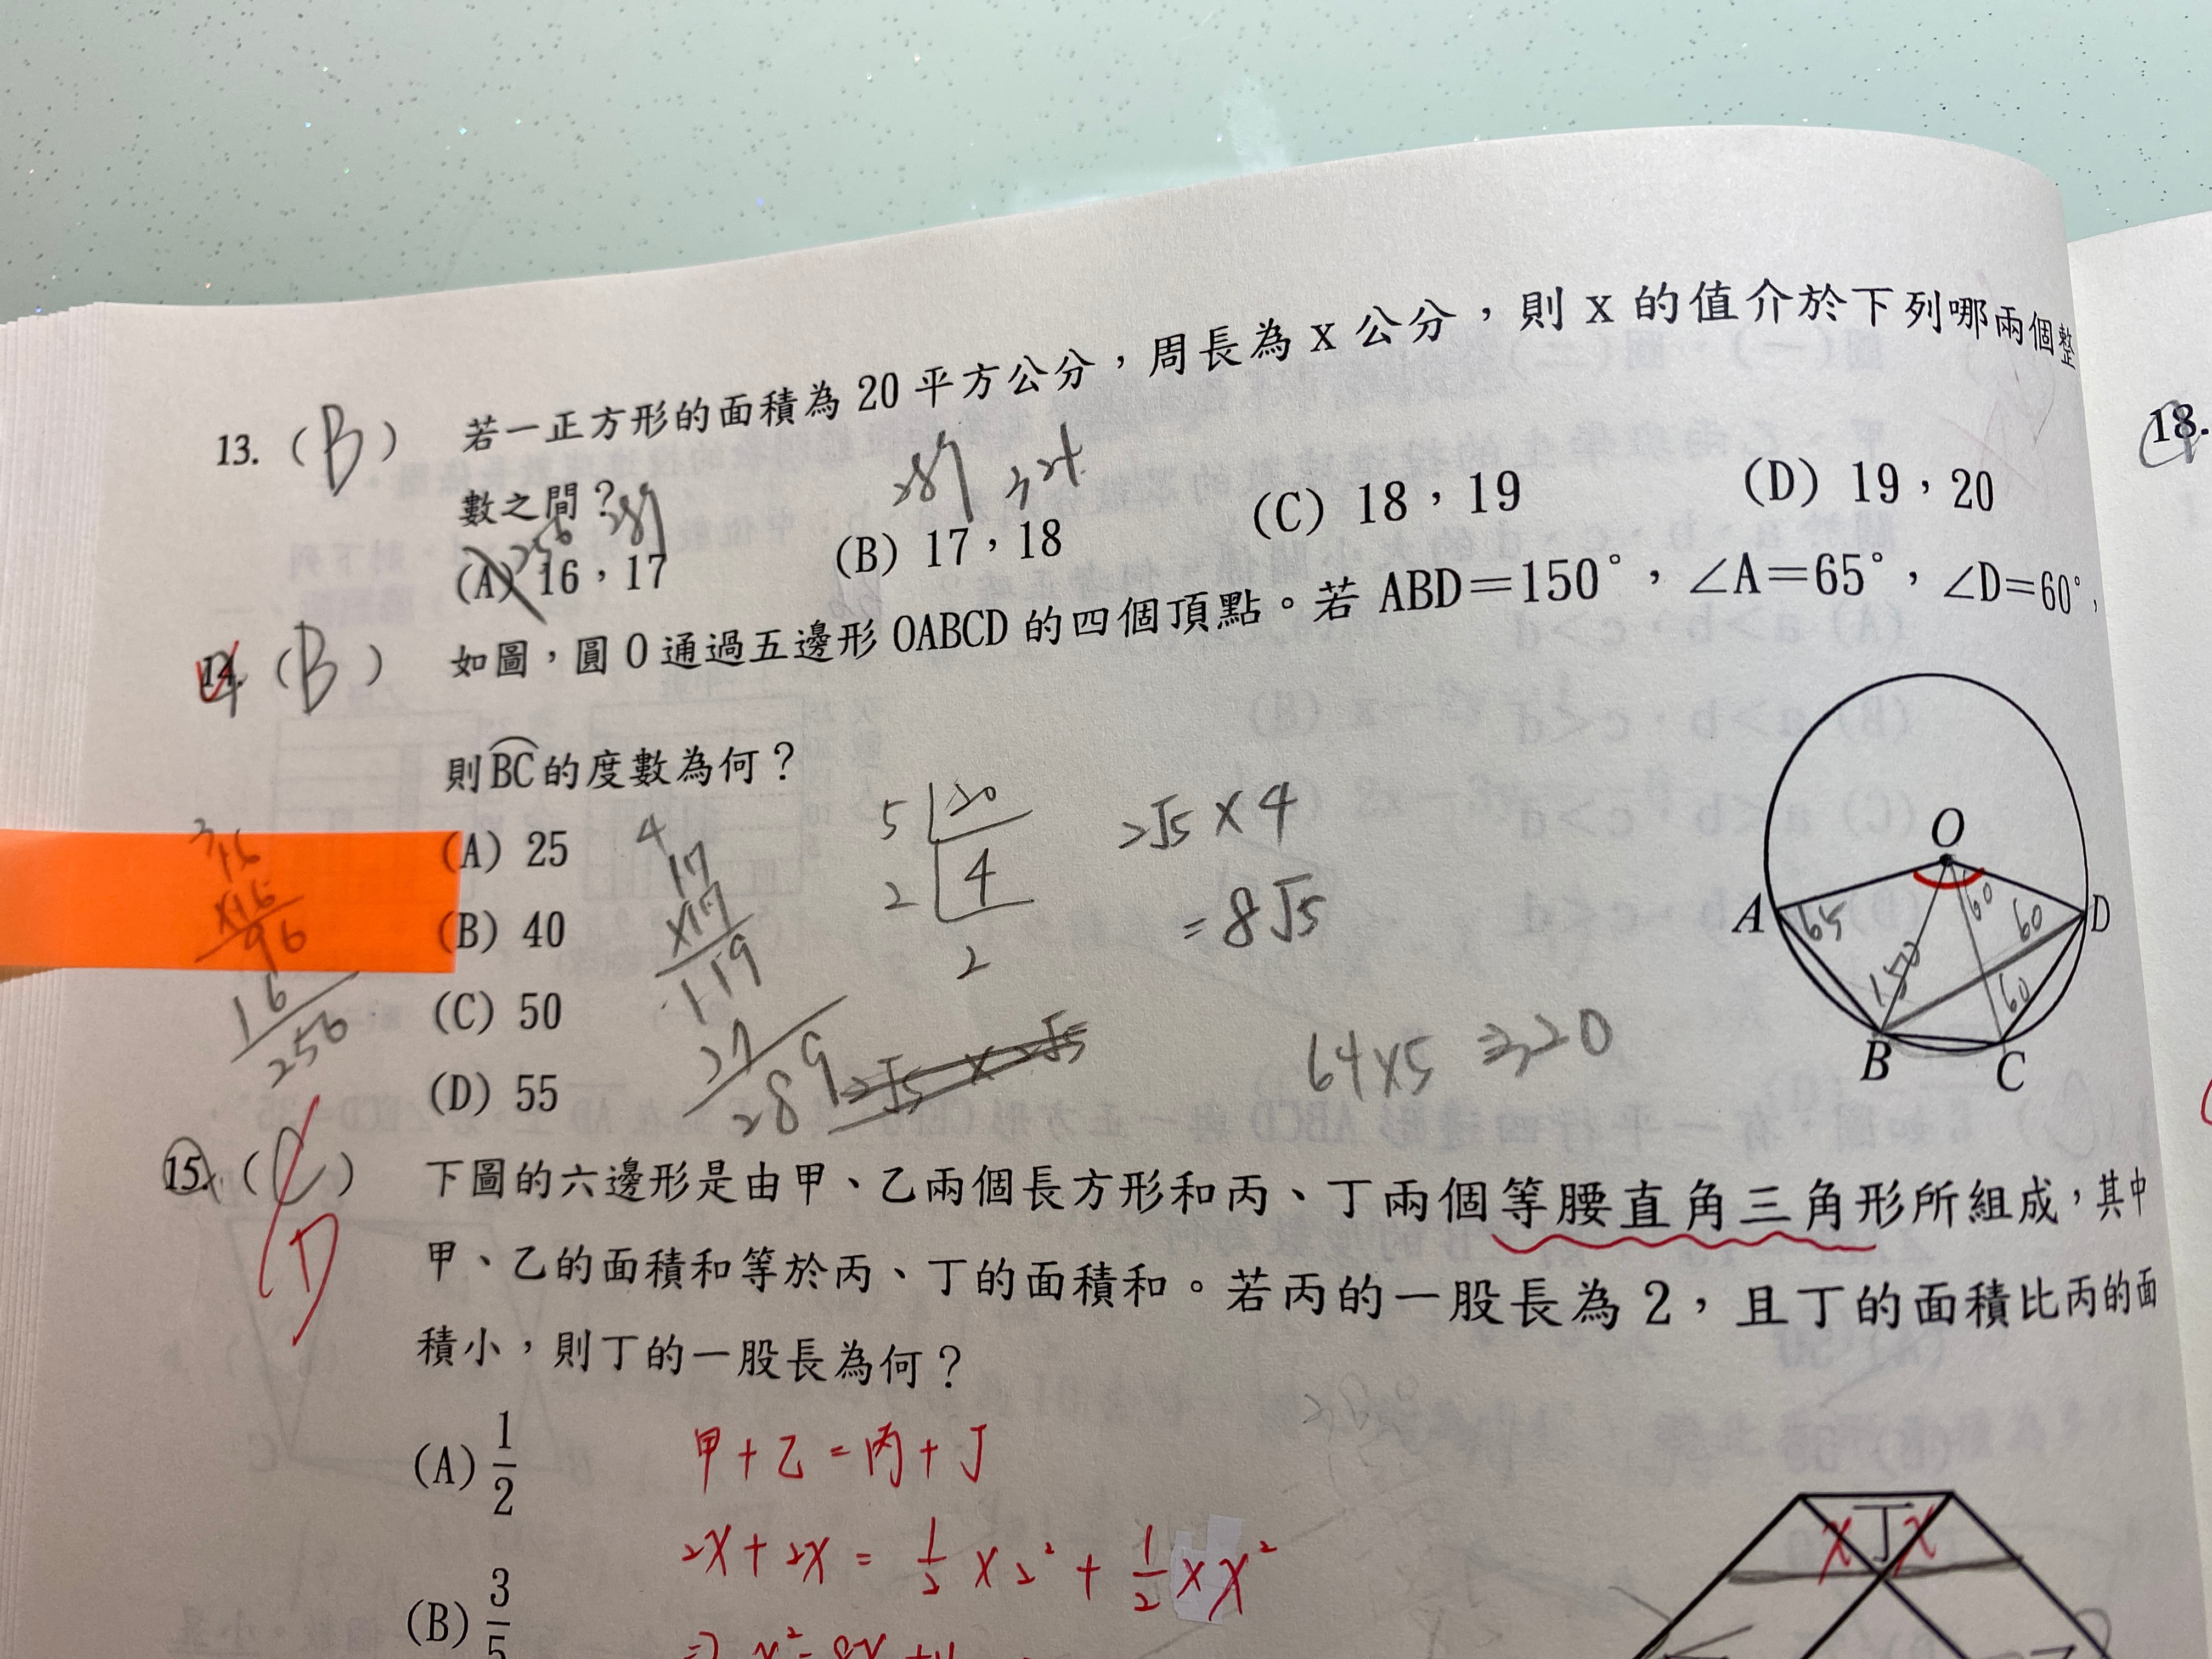 13. (B) 若一正方形的面積為 20 平方公分，周長為 x 公分，則 x 的值介於下列哪兩個整
數之間？
256 289
289 324
(A) 16，17 (B) 17，18 (C) 18，19 (D) 19，20
14. (B) 如圖，圓 O 通過五邊形 OABCD 的四個頂點。若 ABD＝150°，∠A＝65°，∠D＝60°，
則BC的度數為何？
(A) 25
(B) 40
(C) 50
(D) 55
16
×16
96
16
256
4
17
×17
119
17
289
5 20
2 4
2
2√5 × 4
= 8√5
2√5 × 2√5
64×5 = 320
O
A 65 60 60 D
150 60
B C
15. (C) 下圖的六邊形是由甲、乙兩個長方形和丙、丁兩個等腰直角三角形所組成，其中
D
甲、乙的面積和等於丙、丁的面積和。若丙的一股長為 2，且丁的面積比丙的面
積小，則丁的一股長為何？
(A) 1/2
(B) 3/5
甲+乙=丙+丁
2x+2x = 1/2 × 2² + 1/2 × x²
x 丁 x
18.